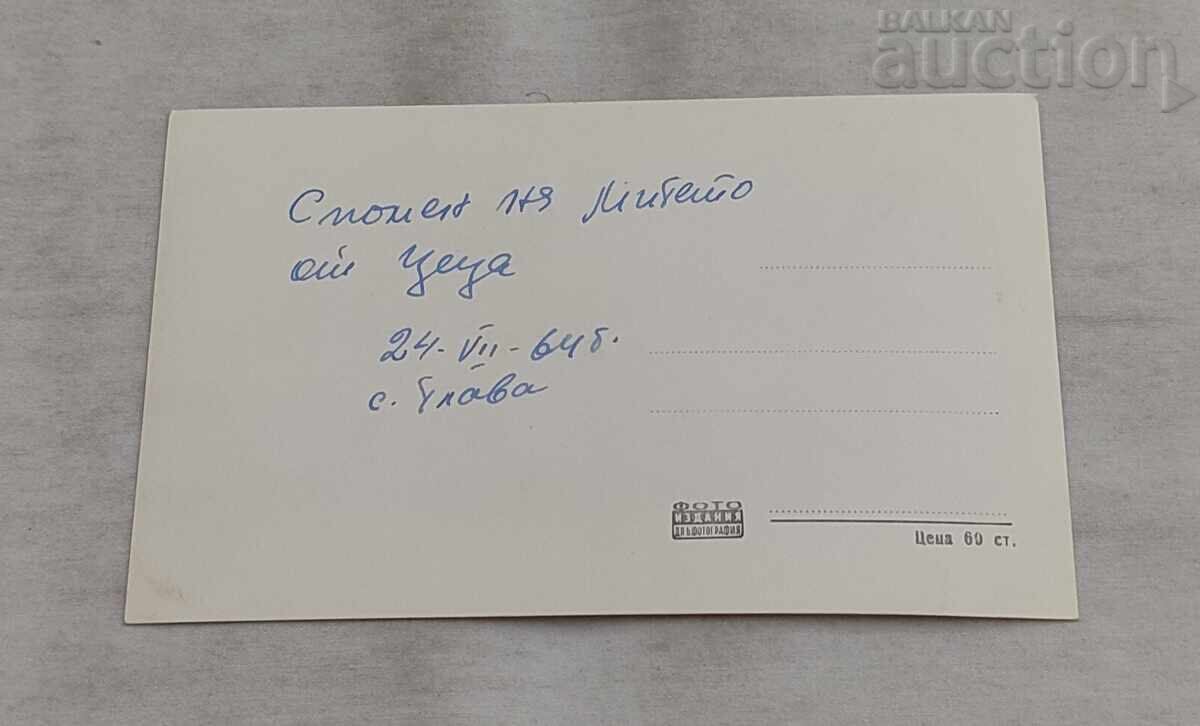 BALKAN
auction
Спомен на Митето
от Цеца
24-VII-64г.
с. Глава
ФОТО
ИЗДАНИЯ
ДП БЪЛГ. ФОТОГРАФИЯ
Цена 60 ст.